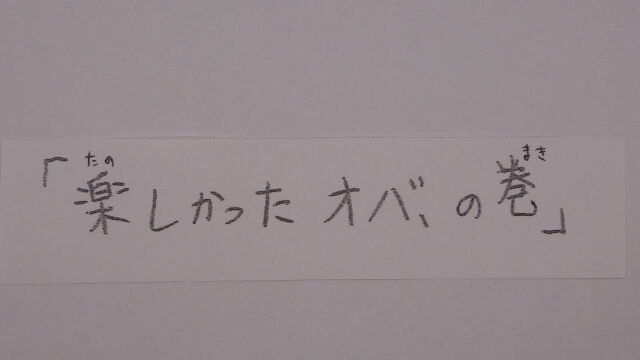 「楽しかった オバヽの巻」
たの まき